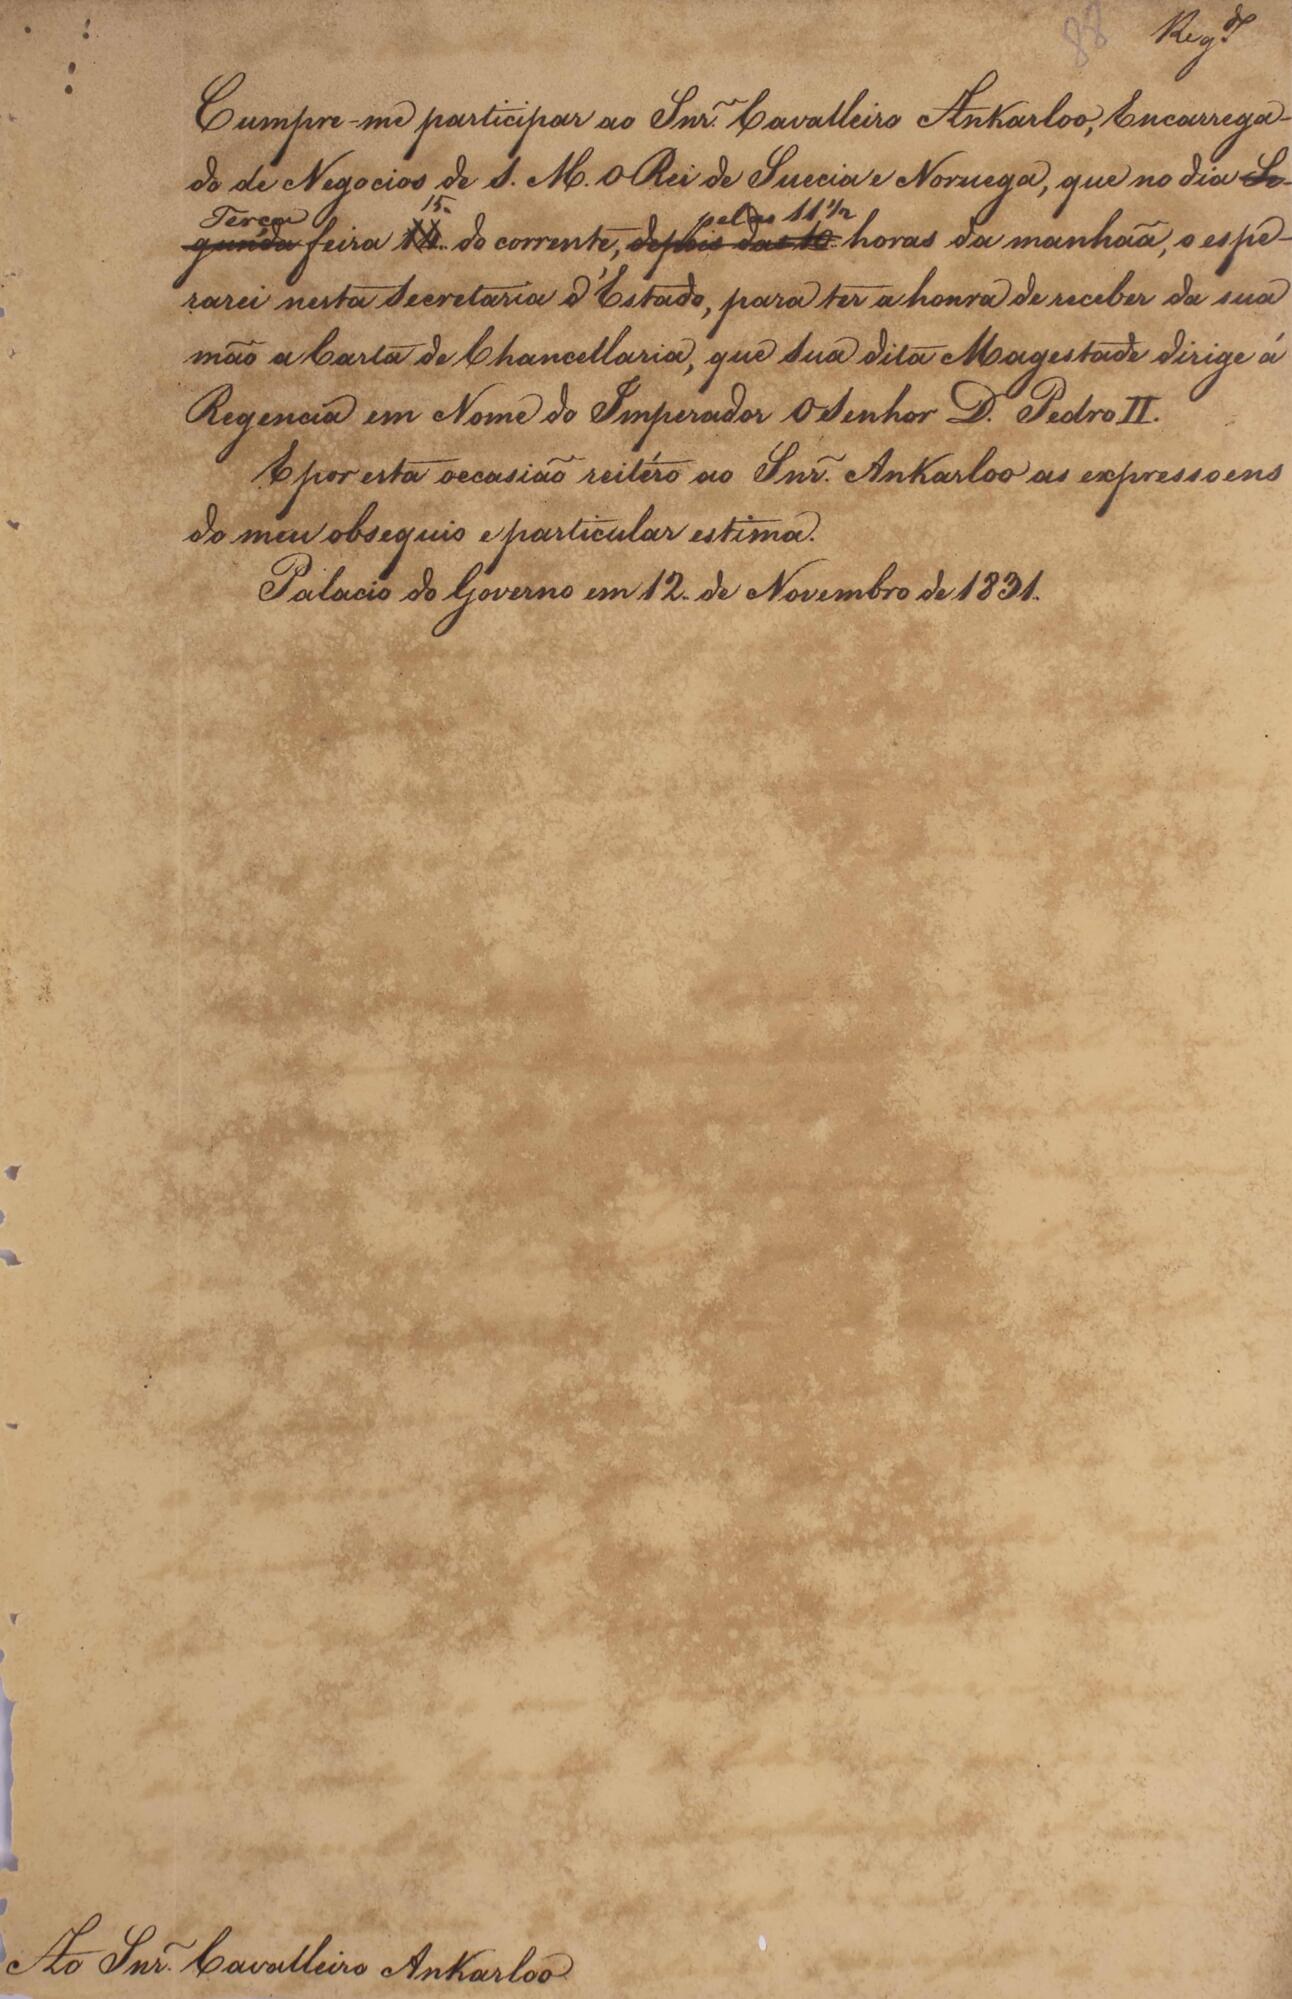 88 Regdo.
Cumpre-me participar ao Snr. Cavalleiro Ankarloo, Encarrega-
do de Negocios de S. M. O Rei de Suecia e Noruega, que no dia Se-
Terça 15. pelas 11 1/2
gunda feira 14. do corrente, depois das 10 horas da manhãa, o espe-
rarei nesta Secretaria d'Estado, para ter a honra de receber da sua
mão a Carta de Chancellaria, que Sua dita Magestade dirige á
Regencia em Nome do Imperador O Senhor D. Pedro II.
E por esta occasião reitéro ao Snr. Ankarloo as expressoens
do meu obsequio e particular estima.
Palacio do Governo em 12. de Novembro de 1831.
Ao Snr. Cavalleiro Ankarloo